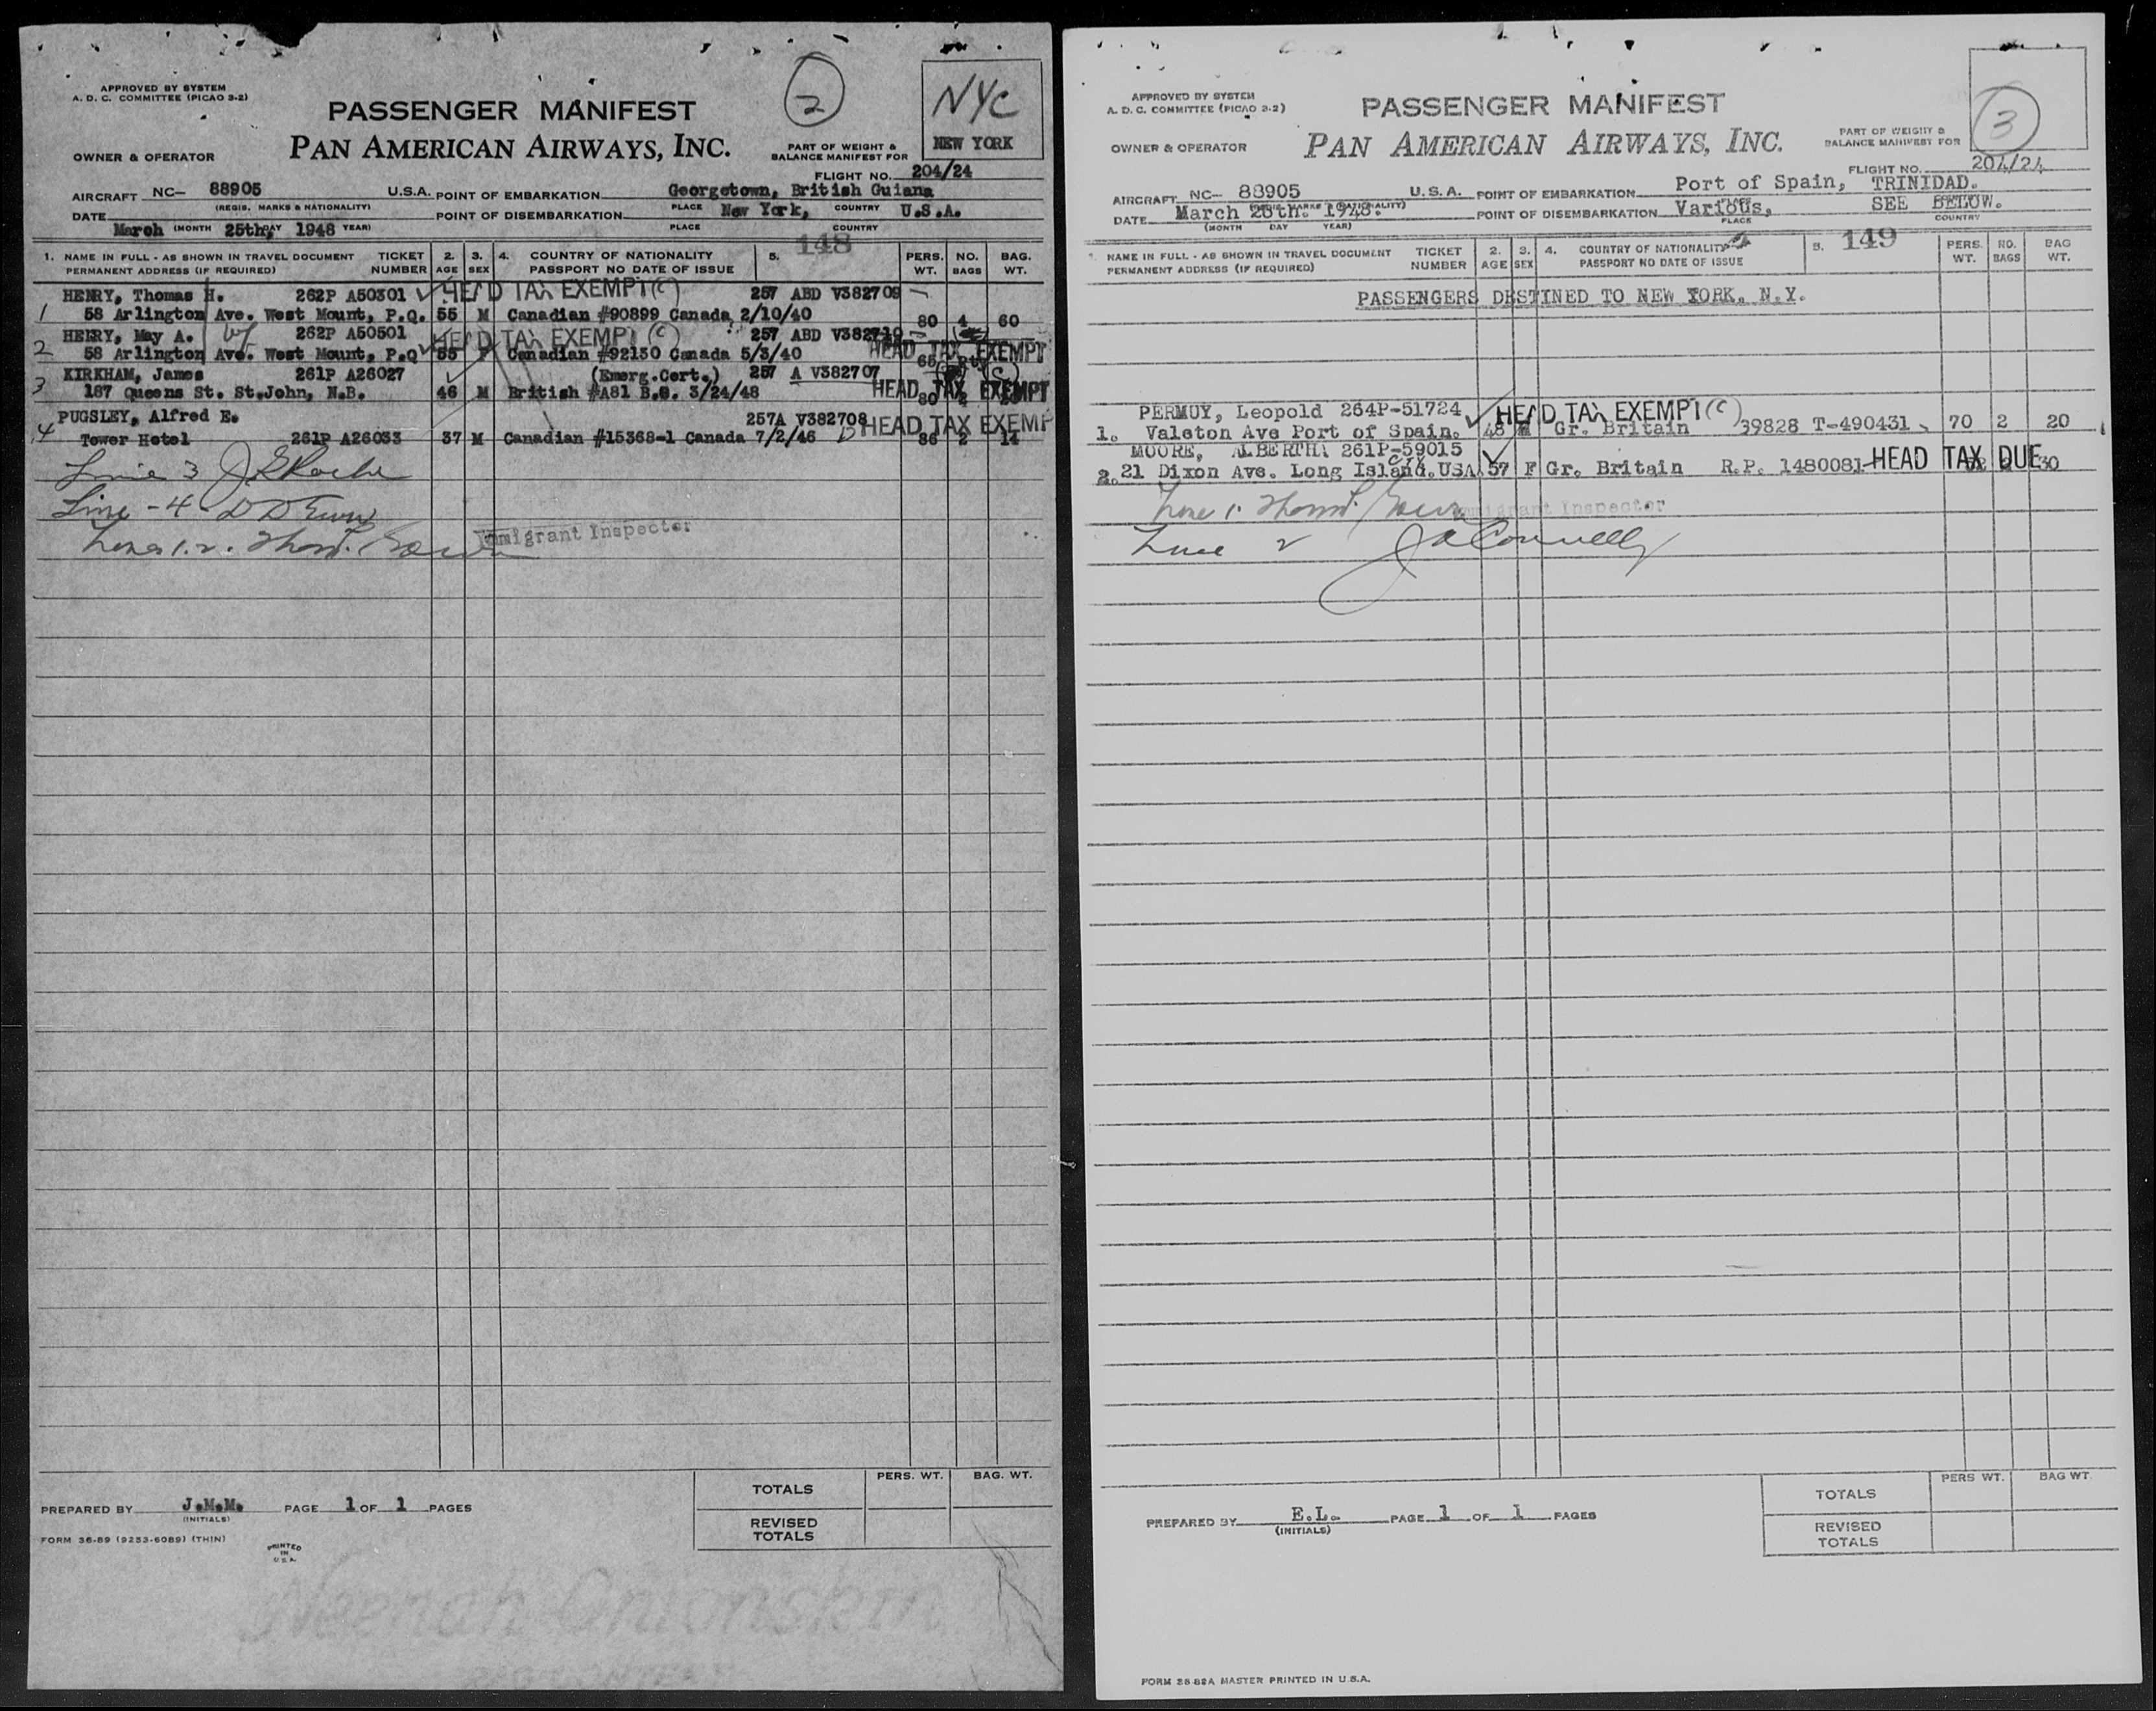 APPROVED BY SYSTEM
A. D. C. COMMITTEE (PICAO 3-2)
2
NYC
NEW YORK
PASSENGER MANIFEST
OWNER & OPERATOR
PAN AMERICAN AIRWAYS, INC.
PART OF WEIGHT &
BALANCE MANIFEST FOR
FLIGHT NO. 204/24
AIRCRAFT NC- 88905 U.S.A. POINT OF EMBARKATION Georgetown, British Guiana
(REGIS. MARKS & NATIONALITY) PLACE COUNTRY
DATE March 25th, 1948 POINT OF DISEMBARKATION New York, U.S.A.
(MONTH DAY YEAR) PLACE COUNTRY
148
1. NAME IN FULL - AS SHOWN IN TRAVEL DOCUMENT TICKET 2. 3. 4. COUNTRY OF NATIONALITY 5. PERS. NO. BAG.
PERMANENT ADDRESS (IF REQUIRED) NUMBER AGE SEX PASSPORT NO DATE OF ISSUE WT. BAGS WT.
HENRY, Thomas H. 262P A50301 HEAD TAX EXEMPT (C) 257 ABD V382709
1 58 Arlington Ave. West Mount, P.Q. 55 M Canadian #90899 Canada 2/10/40 80 4 60
HENRY, May A. 262P A50501 HEAD TAX EXEMPT (C) 257 ABD
2 58 Arlington Ave. West Mount, P.Q 55 F Canadian #92130 Canada 5/3/40 HEAD TAX EXEMPT
KIRKHAM, James 261P A26027 (Emerg.Cert.) 257 A V382707 (C)
3 187 Queens St. St.John, N.B. 46 M British #A81 B.G. 3/24/48 HEAD TAX EXEMPT 80 2
PUGSLEY, Alfred E. 257A V382708
4 Tower Hotel 261P A26033 37 M Canadian #15368-1 Canada 7/2/46 HEAD TAX EXEMP 86 2 14
Line 3
Line - 4
Lines 1. 2.
Immigrant Inspector
TOTALS PERS. WT. BAG. WT.
REVISED
TOTALS
PREPARED BY J.M.M. PAGE 1 OF 1 PAGES
(INITIALS)
FORM 36-89 (9253-6089) (THIN)
PRINTED
IN
U.S.A.
Neenah Onionskin
APPROVED BY SYSTEM
A. D. C. COMMITTEE (PICAO 3-2)
3
PASSENGER MANIFEST
OWNER & OPERATOR
PAN AMERICAN AIRWAYS, INC.
PART OF WEIGHT &
BALANCE MANIFEST FOR
FLIGHT NO. 204/24
AIRCRAFT NC- 88905 U.S.A. POINT OF EMBARKATION Port of Spain, TRINIDAD.
(REGIS. MARKS & NATIONALITY) PLACE
DATE March 1948. POINT OF DISEMBARKATION Various, SEE BELOW.
(MONTH DAY YEAR) PLACE COUNTRY
149
1. NAME IN FULL - AS SHOWN IN TRAVEL DOCUMENT TICKET 2. 3. 4. COUNTRY OF NATIONALITY 5. PERS. NO. BAG
PERMANENT ADDRESS (IF REQUIRED) NUMBER AGE SEX PASSPORT NO DATE OF ISSUE WT. BAGS WT.
PASSENGERS DESTINED TO NEW YORK, N.Y.
PERMUY, Leopold 264P-51724 HEAD TAX EXEMPT (C)
1. Valston Ave Port of Spain. 48 M Gr. Britain 39828 T-490431 70 2 20
MOORE, ALBERTHA 261P-59015
2. 21 Dixon Ave. Long Island, USA 57 F Gr. Britain R.P. 1480081 HEAD TAX DUE 30
Line 1.
Immigrant Inspector
Line 2 J A Connelly
TOTALS PERS WT. BAG WT.
REVISED
TOTALS
PREPARED BY E.L. PAGE 1 OF 1 PAGES
(INITIALS)
FORM 36-89A MASTER PRINTED IN U.S.A.